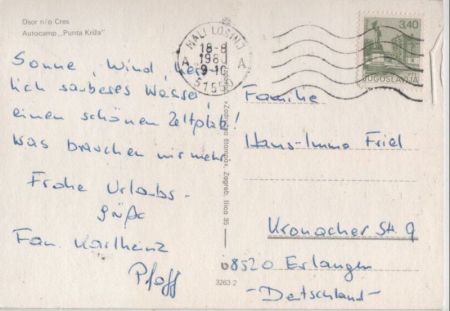 Osor n/o Cres
Autocamp „Punta Križa"
MALI LOŠINJ
18-8
1980
A A
9-10
51550
3.40
JUGOSLAVIJA
Sonne, Wind, herr-
lich sauberes Wasser,
einen schönen Zeltplatz!
Was brauchen wir mehr.
Frohe Urlaubs-
grüße
Fam. Karlheinz
Pfaff
Zagreb, Ilica 35
3263 2
Familie
Hans-Immo Friel
Kronacher Str. 9
8520 Erlangen
-Deutschland-